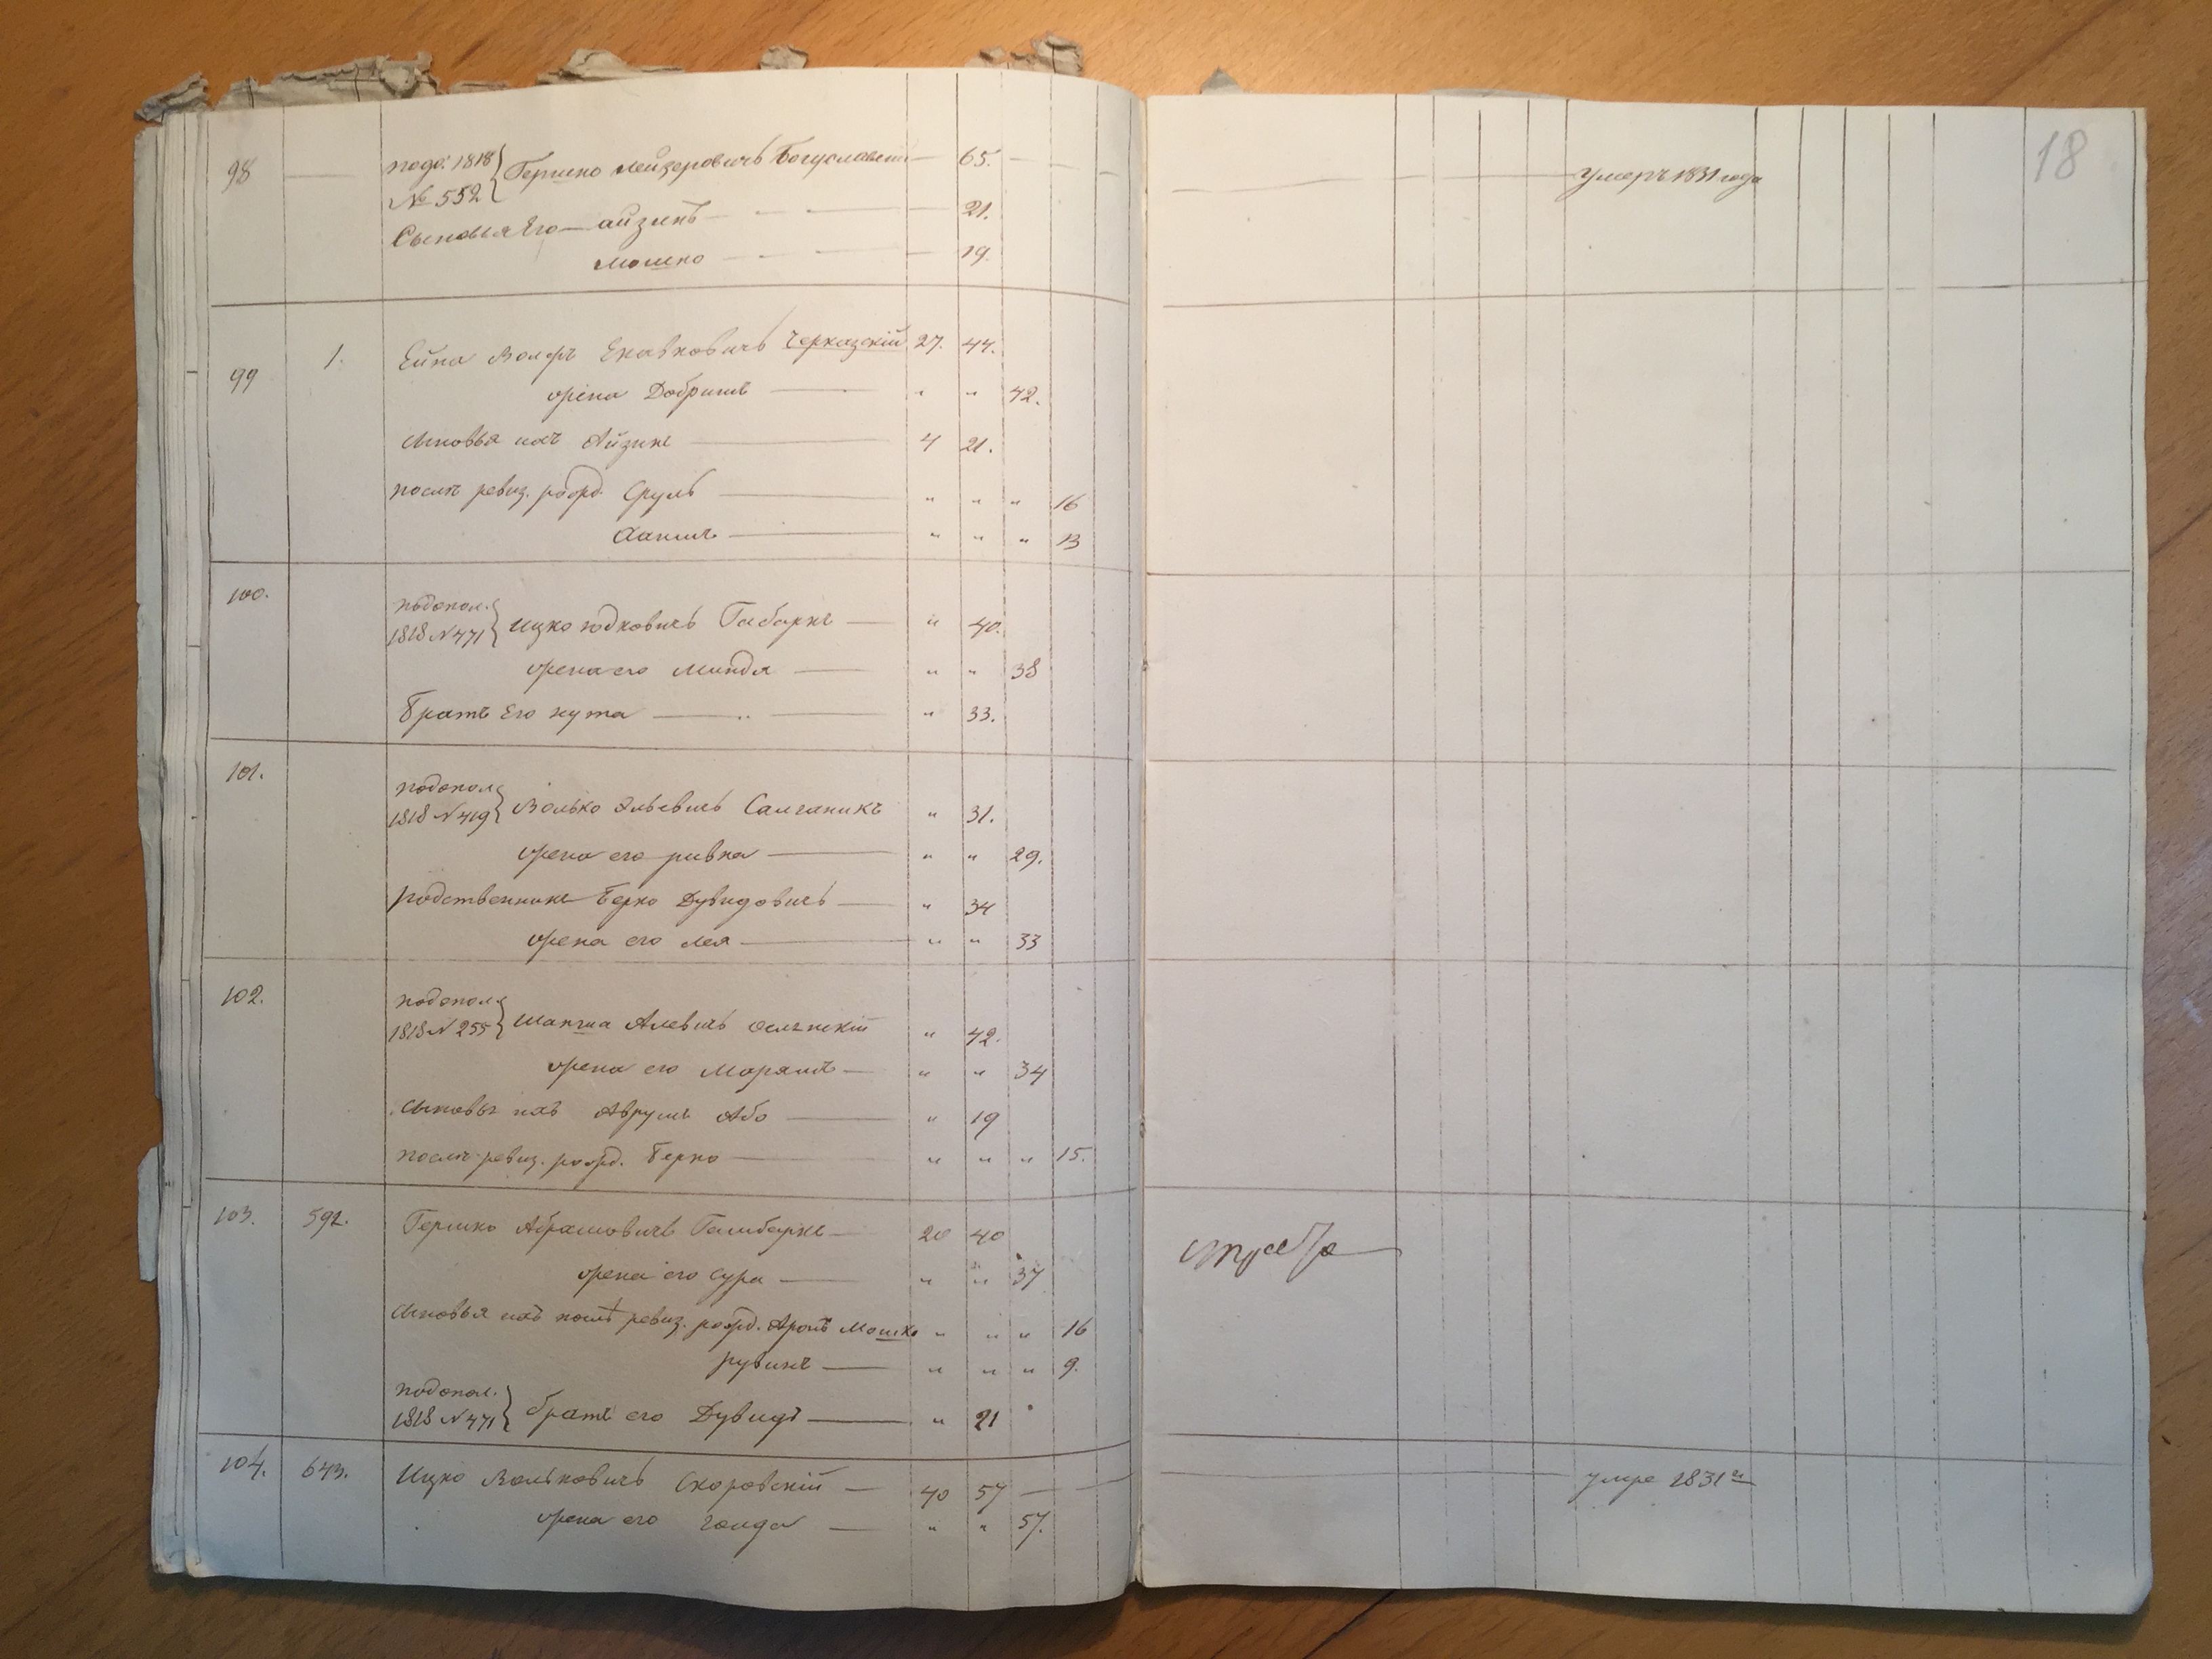 18
98 подо: 1818 Гершко Лейзеровичъ Богуславскій 65. умеръ 1831 года
№ 552
Сыновья Его айзикъ 21.
Мошко 19.
99 1. Волфъ Черказскій 27. 44.
жена Добришъ " " 42.
Сыновья ихъ Айзикъ 4 21.
послѣ ревиз. рожд. Сруль " " " 16
" " " 13
100. подопол. Ицко Юдковичъ " 40.
1818 № 471
жена его Миндя " " 38
братъ Его нута " 33.
101. подопол. Волько Эльевичъ Салганикъ " 31.
1818 № 419
жена его ривка " " 29.
родственникъ Берко Дувидовичъ " 34
жена его лея " " 33
102. подопол. Шапша " 42.
1818 № 255
жена его Марямъ " " 34
Сыновья ихъ Аврумъ Або " 19
послѣ ревиз. рожд. Берко " " " 15.
103. 592. Гершко Абрамовичъ 20 40
жена его Сура " " 37
Сыновья ихъ послѣ ревиз. рожд. Аронъ Мошко " " " 16
рувинъ " " " 9.
подопол. братъ его Дувидъ " 21
1818 № 471
104. 643. Ицко Вольковичъ Скоровскій 40 57 умре 1831 г
жена его голда " " 57.